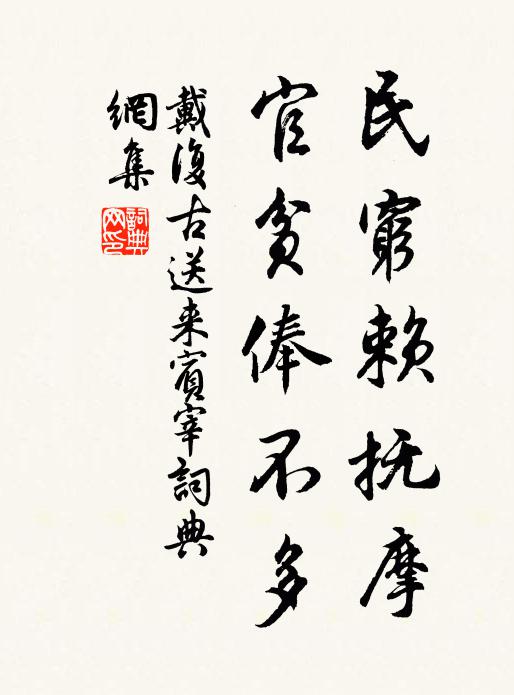 民窮賴抚摩
官貧俸不多
戴復古送来賓宰詞典
網集
詞典網印